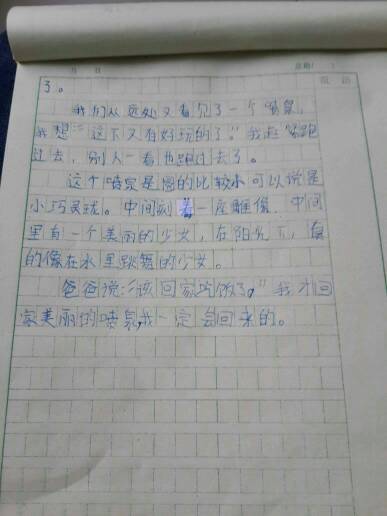 了。
我们从远处又看见了一个喷泉，
我想："这下又有好玩的了。"我赶紧跑
过去，别人一看也跑过去了。
这个喷泉是圆的比较小可以说是
小巧灵珑。中间刻着一座雕像，中间
里有一个美丽的少女，在阳光下，真
的像在水里跳舞的少女。
爸爸说："该回家吃饭了。"我才回
家美丽的喷泉，我一定会回来的。